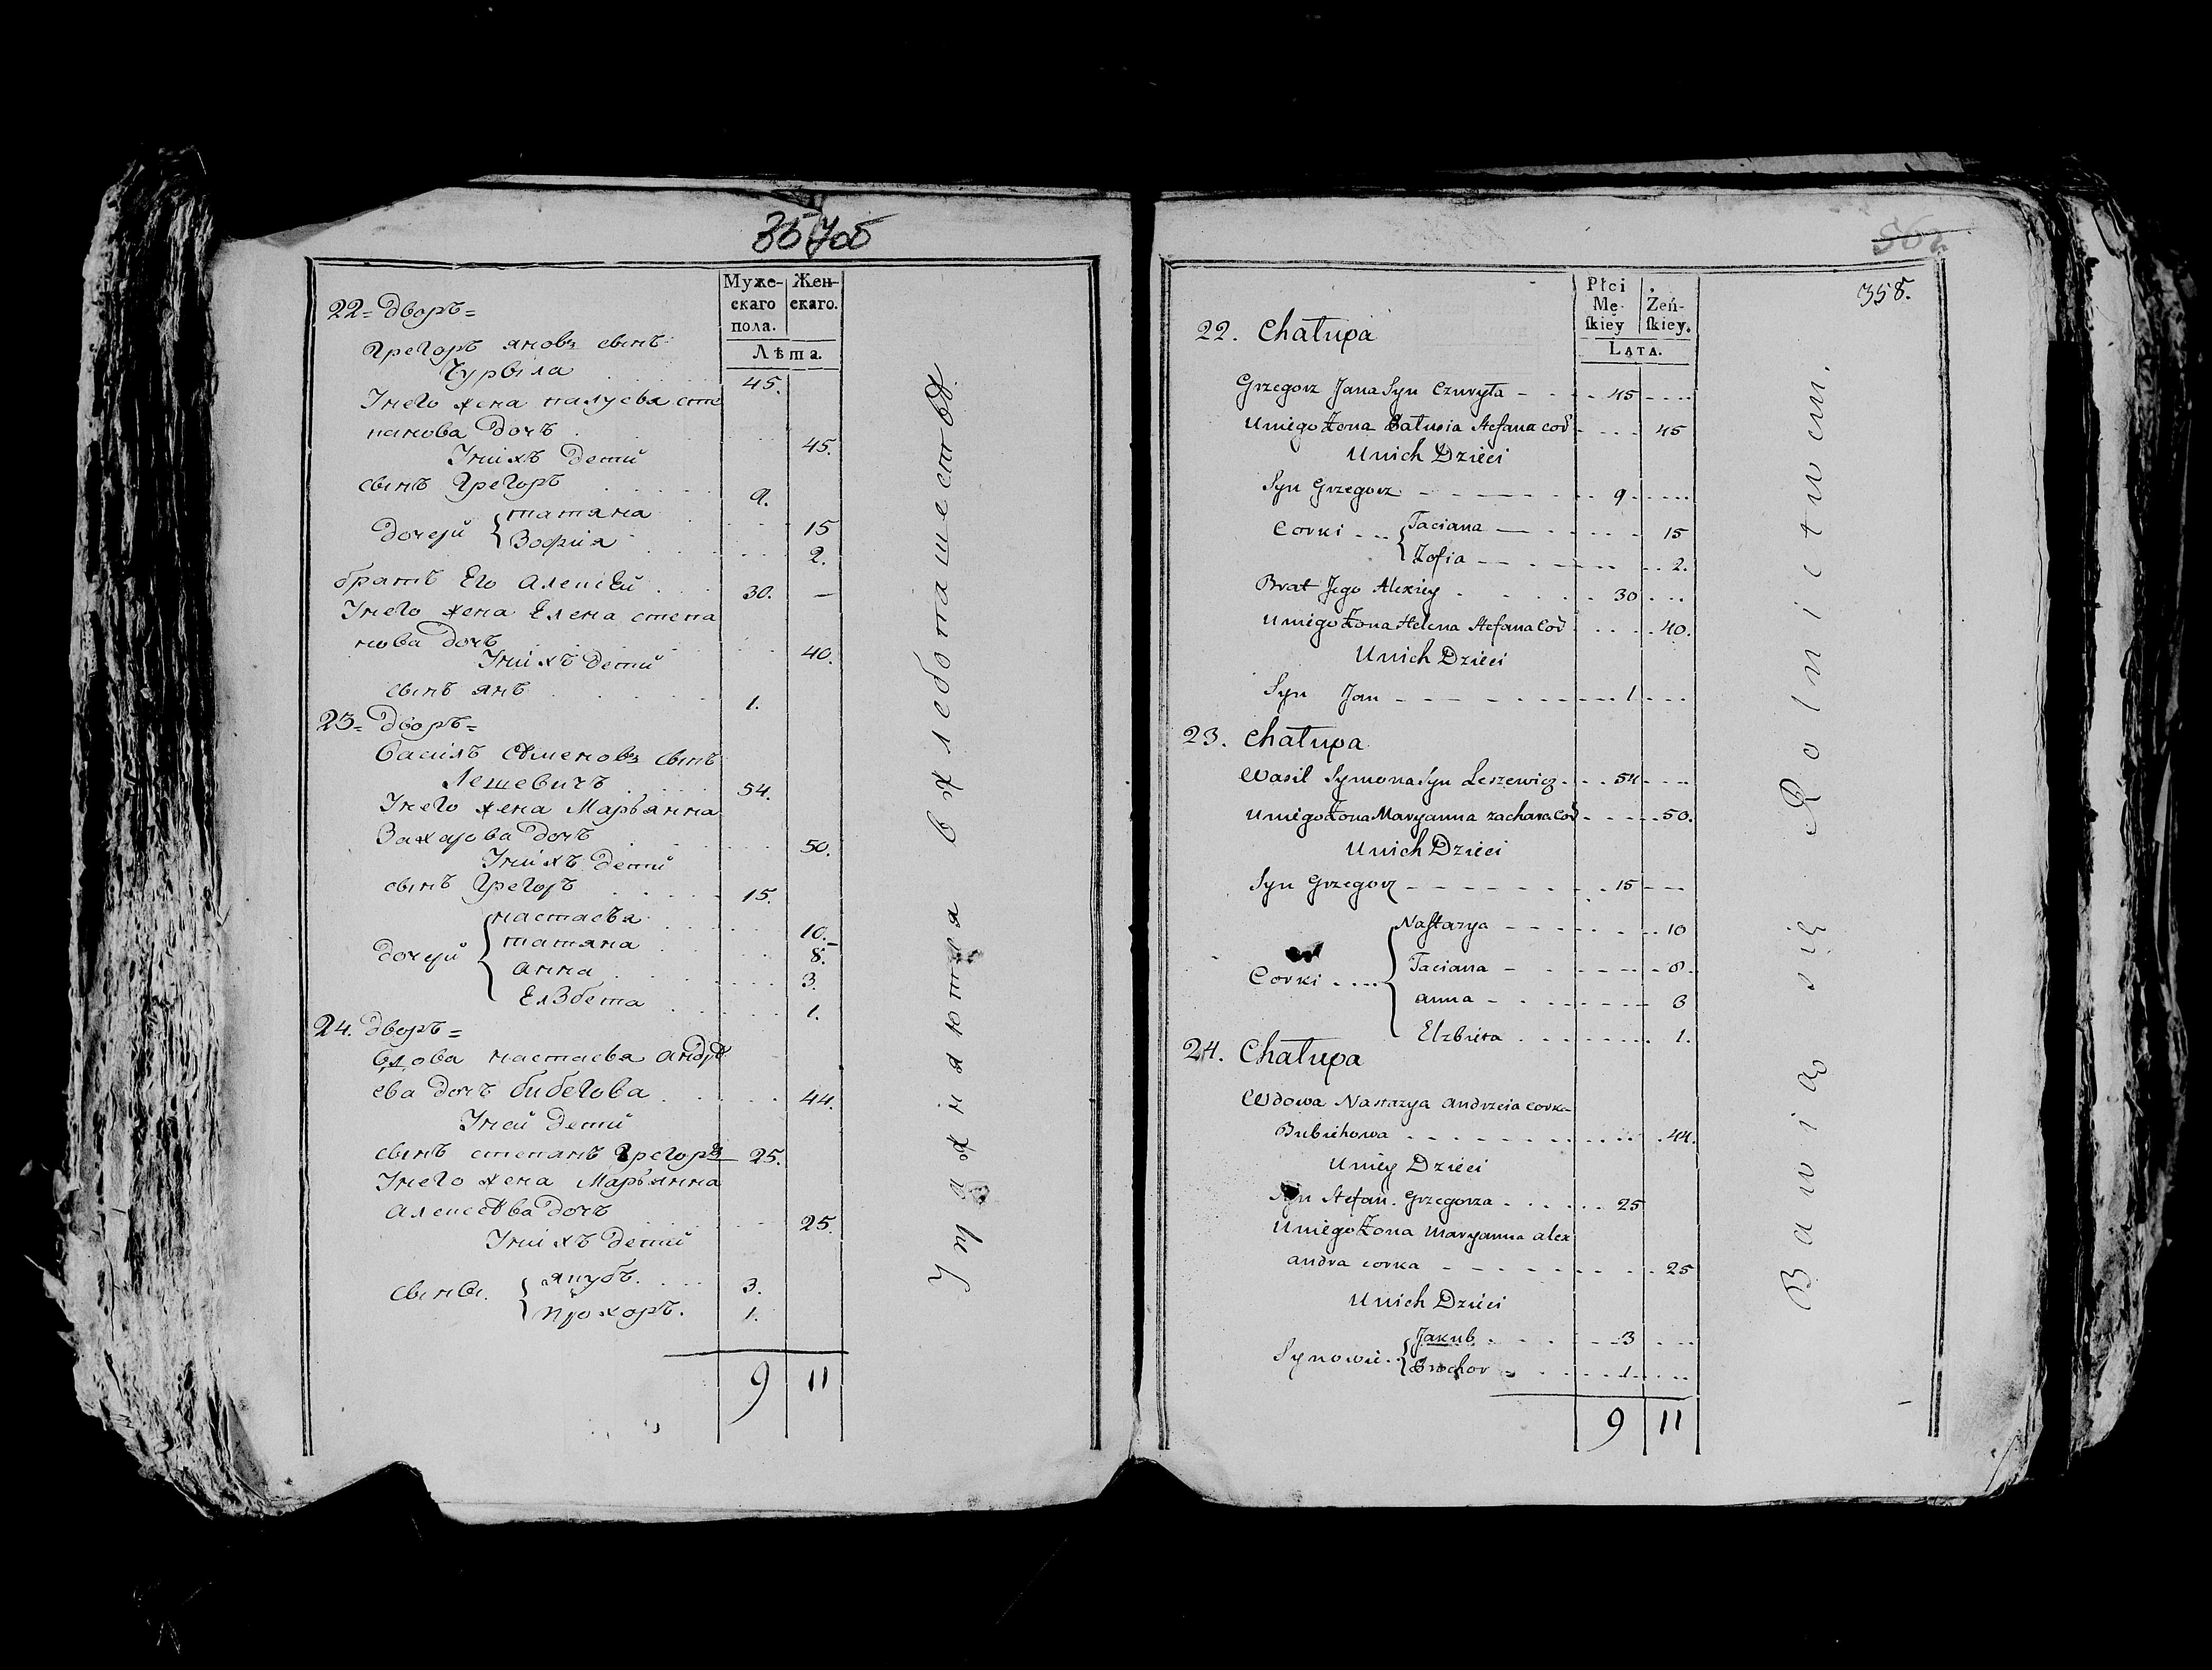 357об
Муже-
скаго
пола.
Жен-
скаго.
Лѣта.
22 = дворъ =
Грегоръ яновъ сынъ
Чурвіла . . . 45.
Унего жена палусья сте
панова дочъ . . . 45.
Унихъ дети
сынъ Грегоръ . . . 9.
дочери { татяна . . . 15
Зофия . . . 2.
братъ Его Алексей . . . 30. —
Унего жена Елена степа
нова дочъ . . . 40.
Унихъ дети
сынъ янъ . . . 1.
23 = дворъ =
Василъ Сыменовъ сынъ
Лешевичъ . . . 54.
Унего жена Марьянна
Захарова дочъ . . . 50.
Унихъ дети
сынъ Грегоръ . . . 15.
дочери { настасья . . . 10.
татяна . . . 8.
анна . . . 3.
Елзбета . . . 1.
24. дворъ =
вдова настасья андре
ева дочъ бибегова . . . 44.
Уней дети
сынъ степанъ Грегоръ 25.
Унего жена Марьянна
алексеева дочъ . . . 25.
Унихъ дети
сыны. { якубъ . . . 3.
прохоръ. 1.
9 11
Упражняются в хлебопашестве
358.
Płci
Mę-
skiey
Żeń-
skiey.
LATA.
22. Chałupa
Grzegorz Jana Syn Czuryła - - 45 - - -
U niego Żona Połusia Stefana Cor - - - 45
U nich Dzieci
Syn Grzegorz - - - 9 - - -
Corki - - { Taciana - - - 15
Zofia - - - 2.
Brat Jego Alexiey . . . 30 . . .
U niego Żona Helena Stefana Cor . . . 40.
U nich Dzieci
Syn Jan - - - 1 - - -
23. Chałupa
Wasil Symona Syn Leszewicz - - 54 - - -
U niego Żona Maryanna Zachara Cor - - - 50.
U nich Dzieci
Syn Grzegorz - - - 15 - - -
Corki . . . . { Nastazya - - - 10
Taciana - - - 8.
anna - - - 3
Elzbieta . . . 1.
24. Chałupa
Wdowa Nastazya andrzeia corka
Bubiehowa . . . 44.
U niey Dzieci
Syn Stefan. Grzegorza . . . 25
U niego Żona Maryanna alex
andra corka - - - 25
U nich Dzieci
Synowie. { Jakub . . . 3 . . .
Prochor . . . 1 . . .
9 11
Bawią się Rolnictwem.